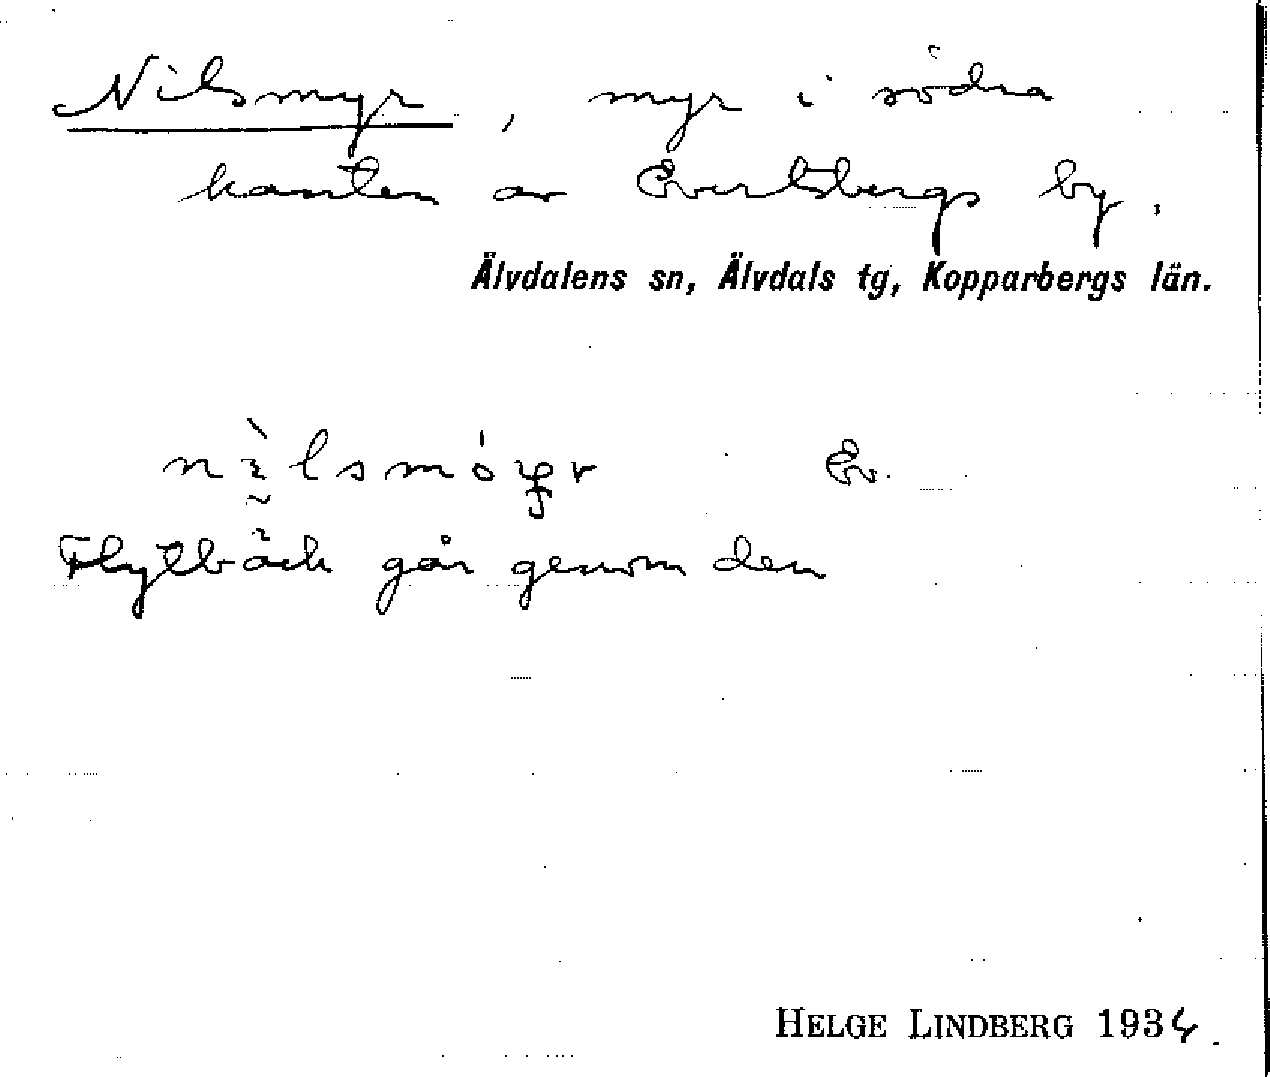 Nilsmyr, myr i södra
kanten av Evertsbergs by.
Älvdalens sn, Älvdals tg, Kopparbergs län.
Ev.
Flytbäck går genom den
HELGE LINDBERG 1934.